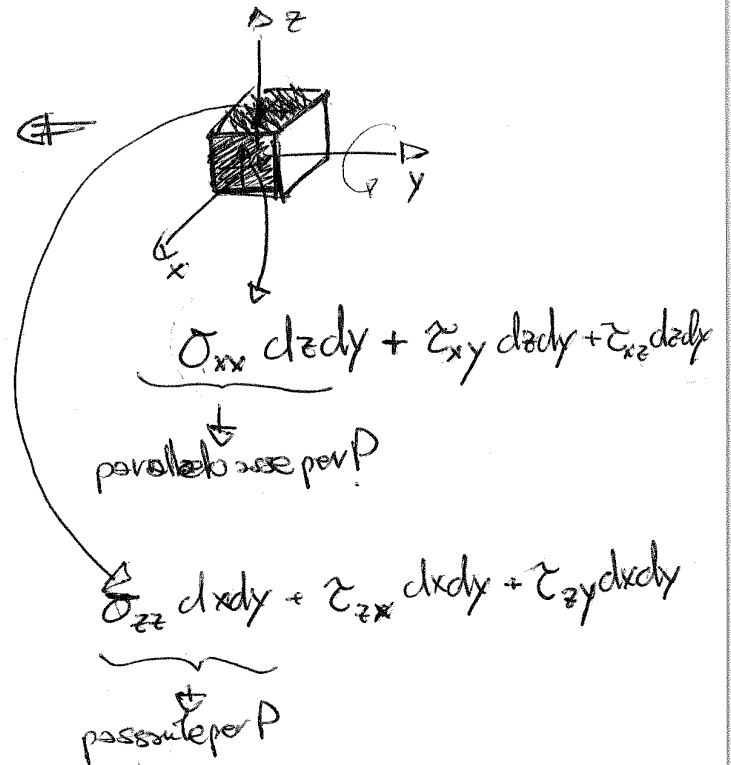 z
y
x
σxx dzdy + τxy dzdy + τxz dzdy
parallelo asse per P
σzz dxdy + τzx dxdy + τzy dxdy
passante per P